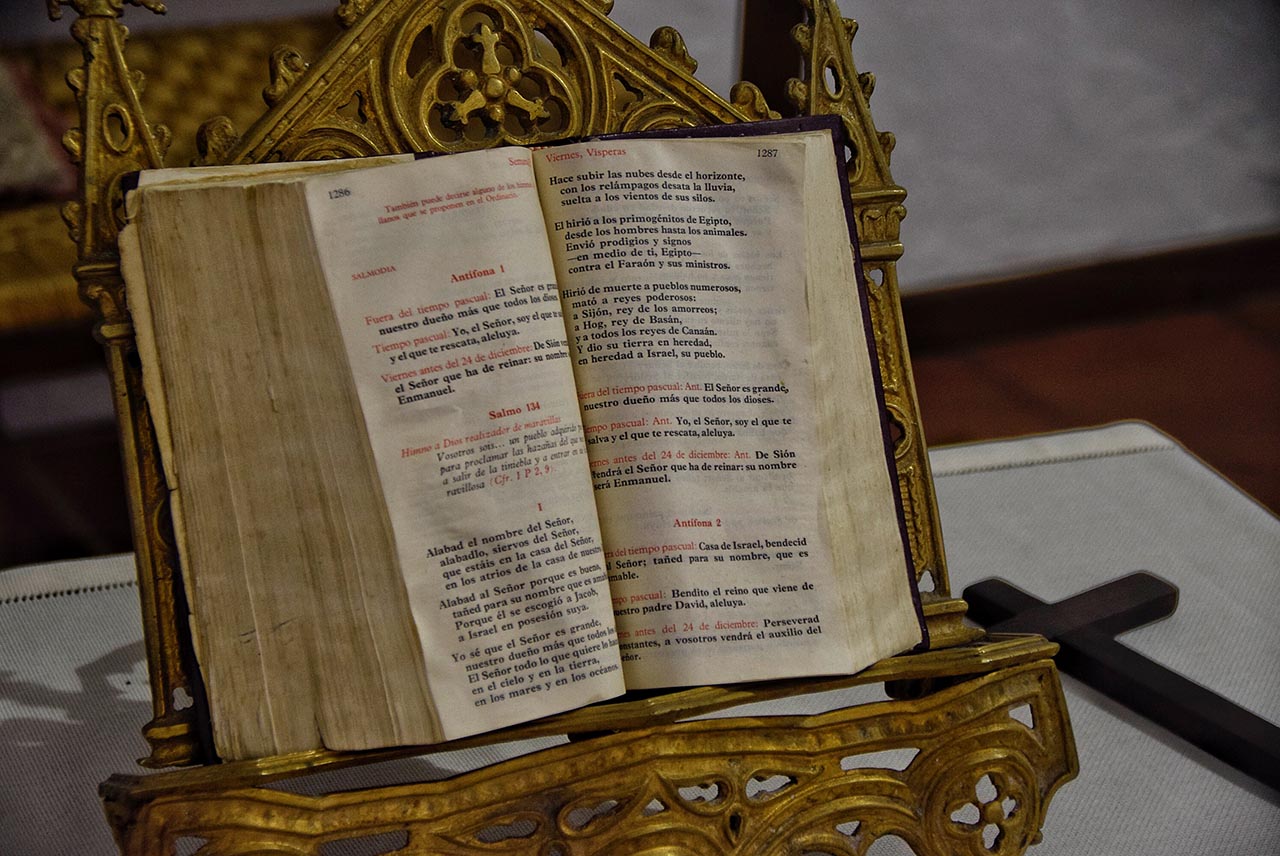 1286
También puede decirse alguno de los
llanos que se proponen en el Ordinario.
SALMODIA
Antífona 1
Fuera del tiempo pascual: El Señor es
nuestro dueño más que todos los dioses
Tiempo pascual: Yo, el Señor, soy el que te
y el que te rescata, aleluya.
Viernes antes del 24 de diciembre: De Sión
el Señor que ha de reinar: su nombre
Enmanuel.
Salmo 134
Himno a Dios realizador de maravillas
Vosotros sois... un pueblo adquirido
para proclamar las hazañas del que
a salir de la tiniebla y a entrar en
ravillosa (Cfr. 1 P 2, 9)
I
Alabad el nombre del Señor,
alabadlo, siervos del Señor,
que estáis en la casa del Señor,
en los atrios de la casa de nuestro
Alabad al Señor porque es bueno,
tañed para su nombre que es
Porque él se escogió a Jacob,
a Israel en posesión suya.
Yo sé que el Señor es grande,
nuestro dueño más que todos los
El Señor todo lo que quiere lo
en el cielo y en la tierra,
en los mares y en los océanos
Viernes, Vísperas 1287
Hace subir las nubes desde el horizonte,
con los relámpagos desata la lluvia,
suelta a los vientos de sus silos.
El hirió a los primogénitos de Egipto,
desde los hombres hasta los animales.
Envió prodigios y signos
—en medio de ti, Egipto—
contra el Faraón y sus ministros.
Hirió de muerte a pueblos numerosos,
mató a reyes poderosos:
a Sijón, rey de los amorreos;
a Hog, rey de Basán,
y a todos los reyes de Canaán.
Y dio su tierra en heredad,
en heredad a Israel, su pueblo.
uera del tiempo pascual: Ant. El Señor es grande,
nuestro dueño más que todos los dioses.
empo pascual: Ant. Yo, el Señor, soy el que te
salva y el que te rescata, aleluya.
ernes antes del 24 de diciembre: Ant. De Sión
endrá el Señor que ha de reinar: su nombre
será Enmanuel.
Antífona 2
ra del tiempo pascual: Casa de Israel, bendecid
l Señor; tañed para su nombre, que es
mable.
po pascual: Bendito el reino que viene de
uestro padre David, aleluya.
rnes antes del 24 de diciembre: Perseverad
onstantes, a vosotros vendrá el auxilio del
ñor.